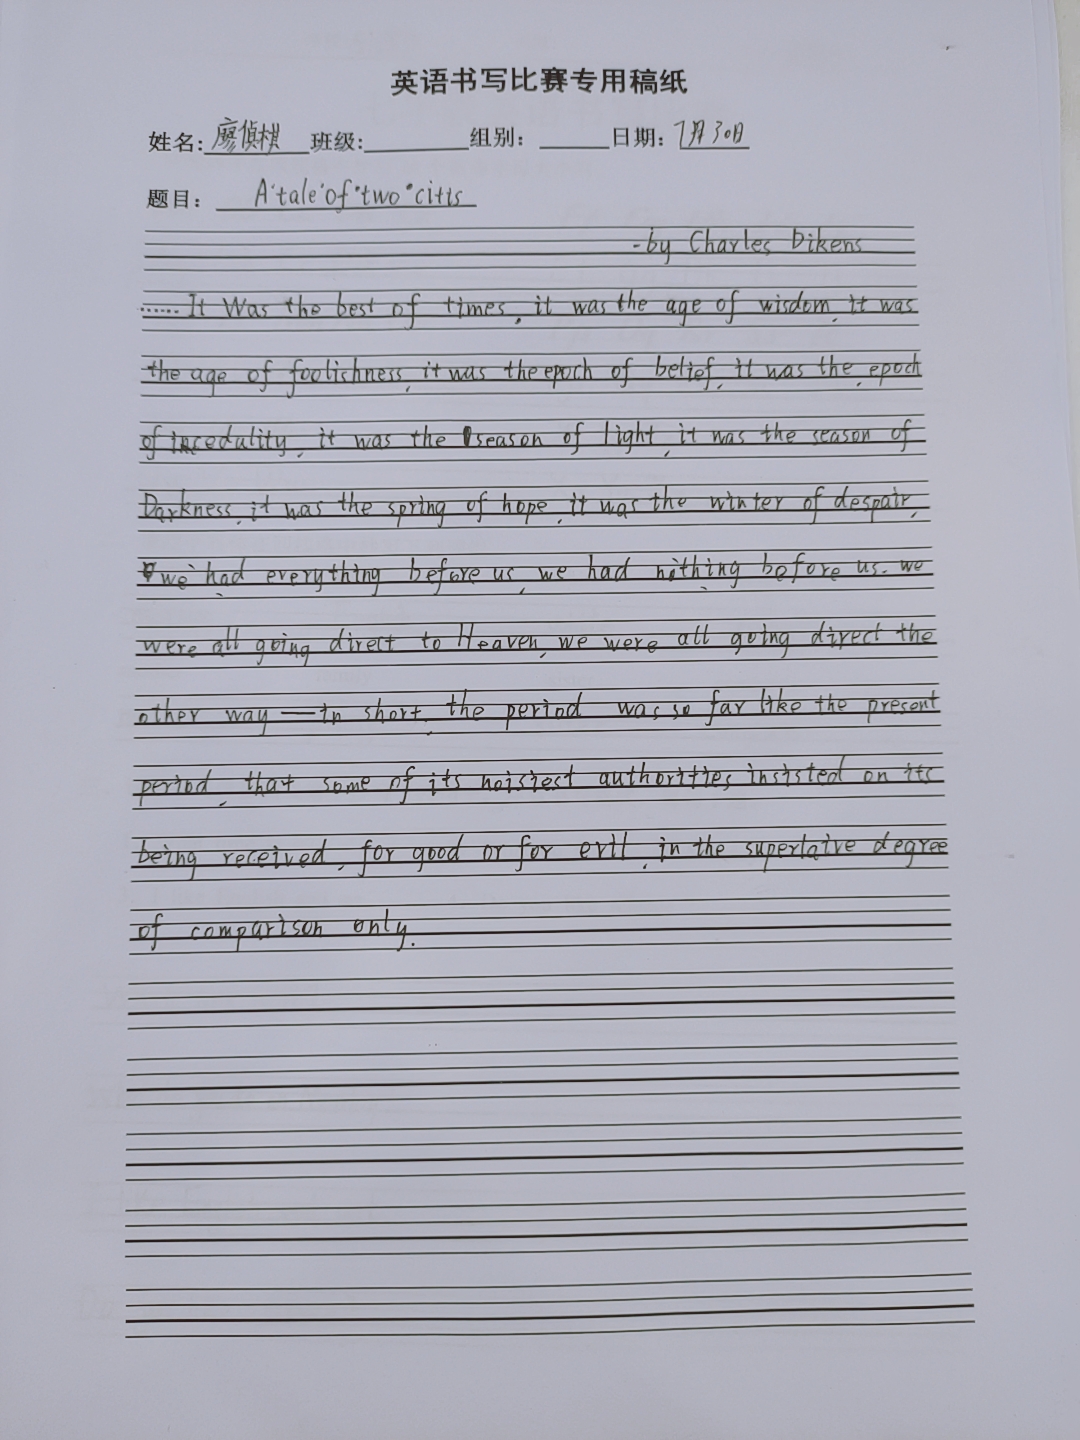 英语书写比赛专用稿纸
姓名: 廖偵棋 班级: 组别: 日期: 7月30日
题目: A tale of two citis
-by Charles Dikens
......It Was the best of times, it was the age of wisdom, it was
the age of foolishness, it was the epoch of belief, it was the epoch
of incedulity, it was the season of light, it was the season of
Darkness, it was the spring of hope, it was the winter of despair,
we had everything before us, we had nithing before us. we
were all going direct to Heaven, we were all going direct the
other way — in short, the period was so far like the present
period, that some of its noisiest authorities insisted on its
being received, for good or for evil, in the superlaive degree
of comparison only.